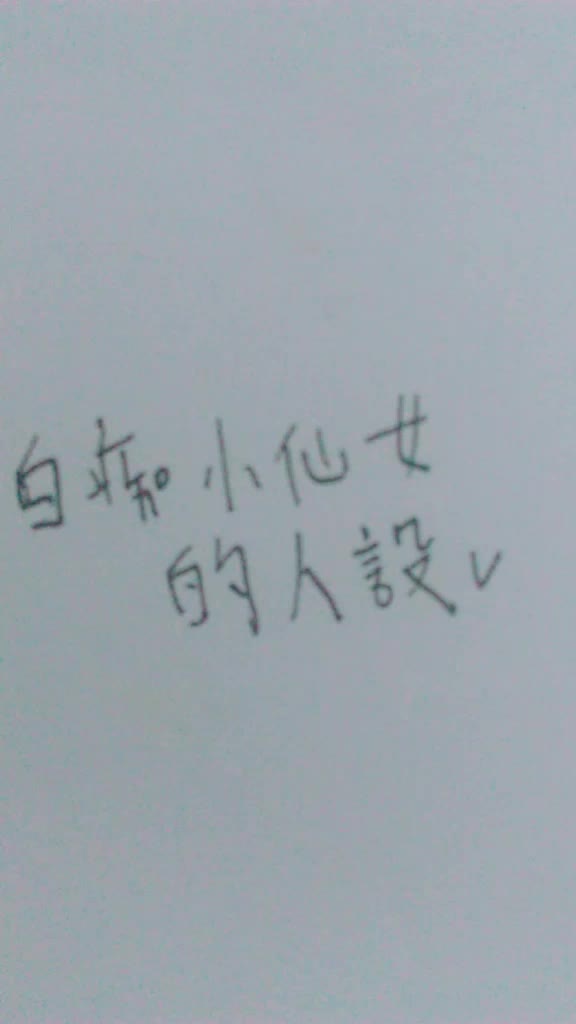 白痴小仙女
的人設✓